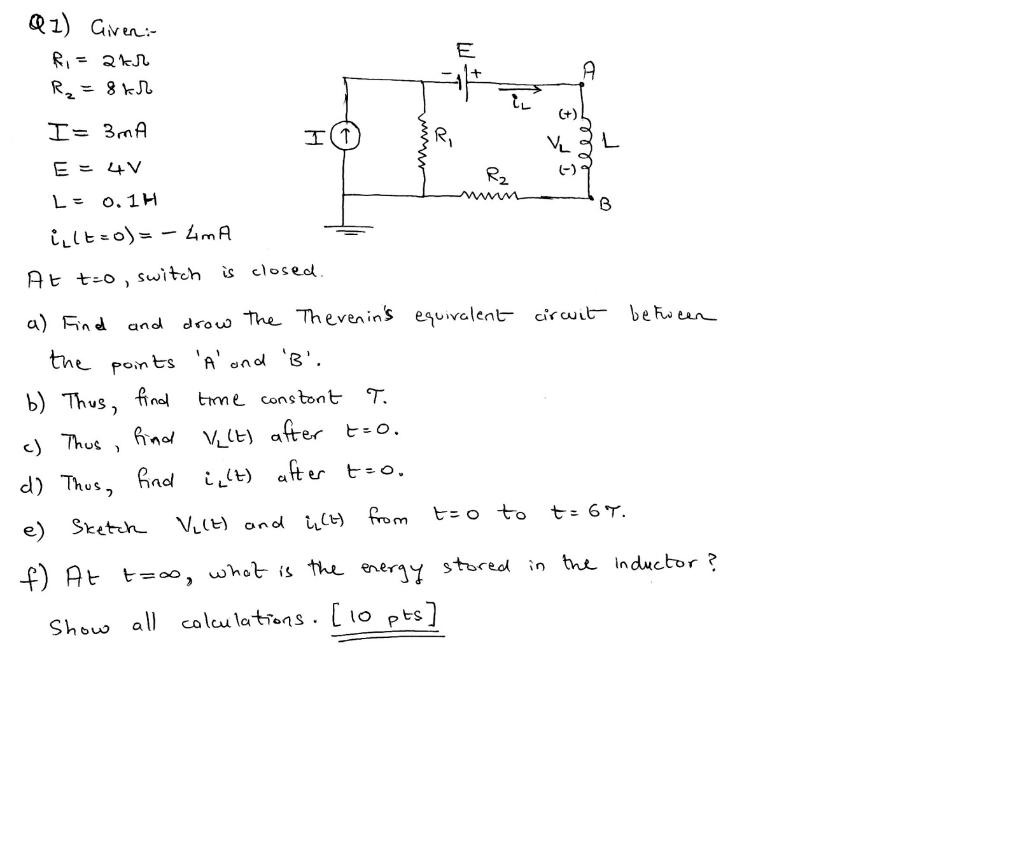 Q1) Given:-
R₁ = 2kΩ
R₂ = 8kΩ
I = 3mA
E = 4V
L = 0.1H
iL(t=0) = - 4mA
E
- +
A
iL
(+)
I
R₁
VL
L
(-)
R₂
B
At t=0, switch is closed.
a) Find and draw the Thevenin's equivalent circuit between
the points 'A' and 'B'.
b) Thus, find time constant τ.
c) Thus, find VL(t) after t=0.
d) Thus, find iL(t) after t=0.
e) Sketch VL(t) and iL(t) from t=0 to t=6τ.
f) At t=∞, what is the energy stored in the inductor?
Show all calculations. [10 pts]